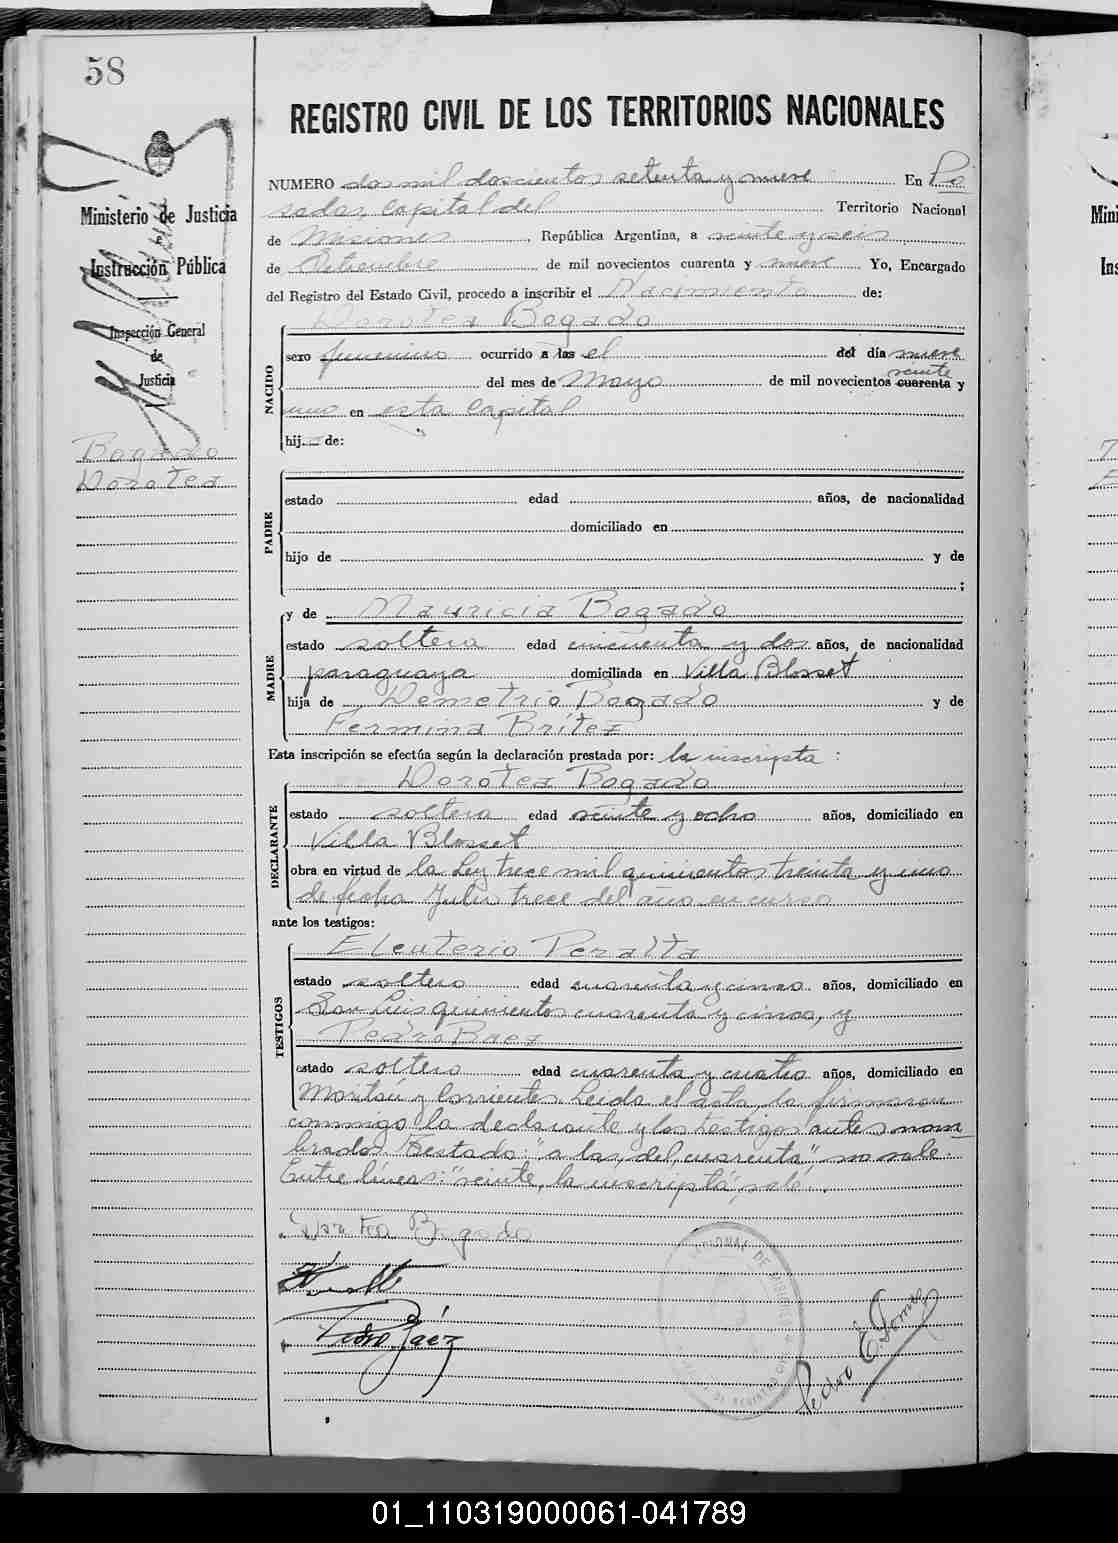 58
REGISTRO CIVIL DE LOS TERRITORIOS NACIONALES
Ministerio de Justicia
Instrucción Pública
Inspección General
de
Justicia
Bogado
Dorotea
NUMERO dos mil doscientos setenta y nueve En Po
sadas, capital del Territorio Nacional
de Misiones, República Argentina, a veinte y seis
de Setiembre de mil novecientos cuarenta y nueve Yo, Encargado
del Registro del Estado Civil, procedo a inscribir el Nacimiento de:
NACIDO
Dorotea Bogado
sexo femenino ocurrido a las el del día nueve
veinte
del mes de Mayo de mil novecientos cuarenta y
uno en esta capital
hija de:
PADRE
estado edad años, de nacionalidad
domiciliado en
hijo de y de
;
MADRE
y de Mauricia Bogado
estado soltera edad cincuenta y dos años, de nacionalidad
paraguaya domiciliada en Villa Blosset
hija de Demetrio Bogado y de
Fermina Brítez
Esta inscripción se efectúa según la declaración prestada por: la inscripta :
DECLARANTE
Dorotea Bogado
estado soltera edad veinte y ocho años, domiciliado en
Villa Blosset
obra en virtud de la Ley trece mil quinientos treinta y uno
de fecha Julio trece del año en curso
ante los testigos:
TESTIGOS
Eleuterio Peralta
estado soltero edad cuarenta y cinco años, domiciliado en
San Luis quinientos cuarenta y cinco, y
Pedro Baez
estado soltero edad cuarenta y cuatro años, domiciliado en
y Corrientes. Leída el acta, la firmaron
conmigo la declarante y los testigos antes nom-
brados. Testado: "a las, del, cuarenta", no vale.
Entre líneas: "veinte, la inscripta", vale.
Dorotea Bogado
Pedro Báez
Pedro E.
01_110319000061-041789